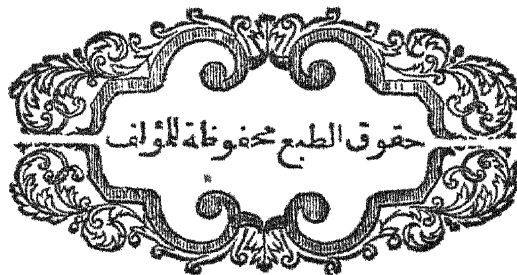 حقوق الطبع محفوظة للمؤلف